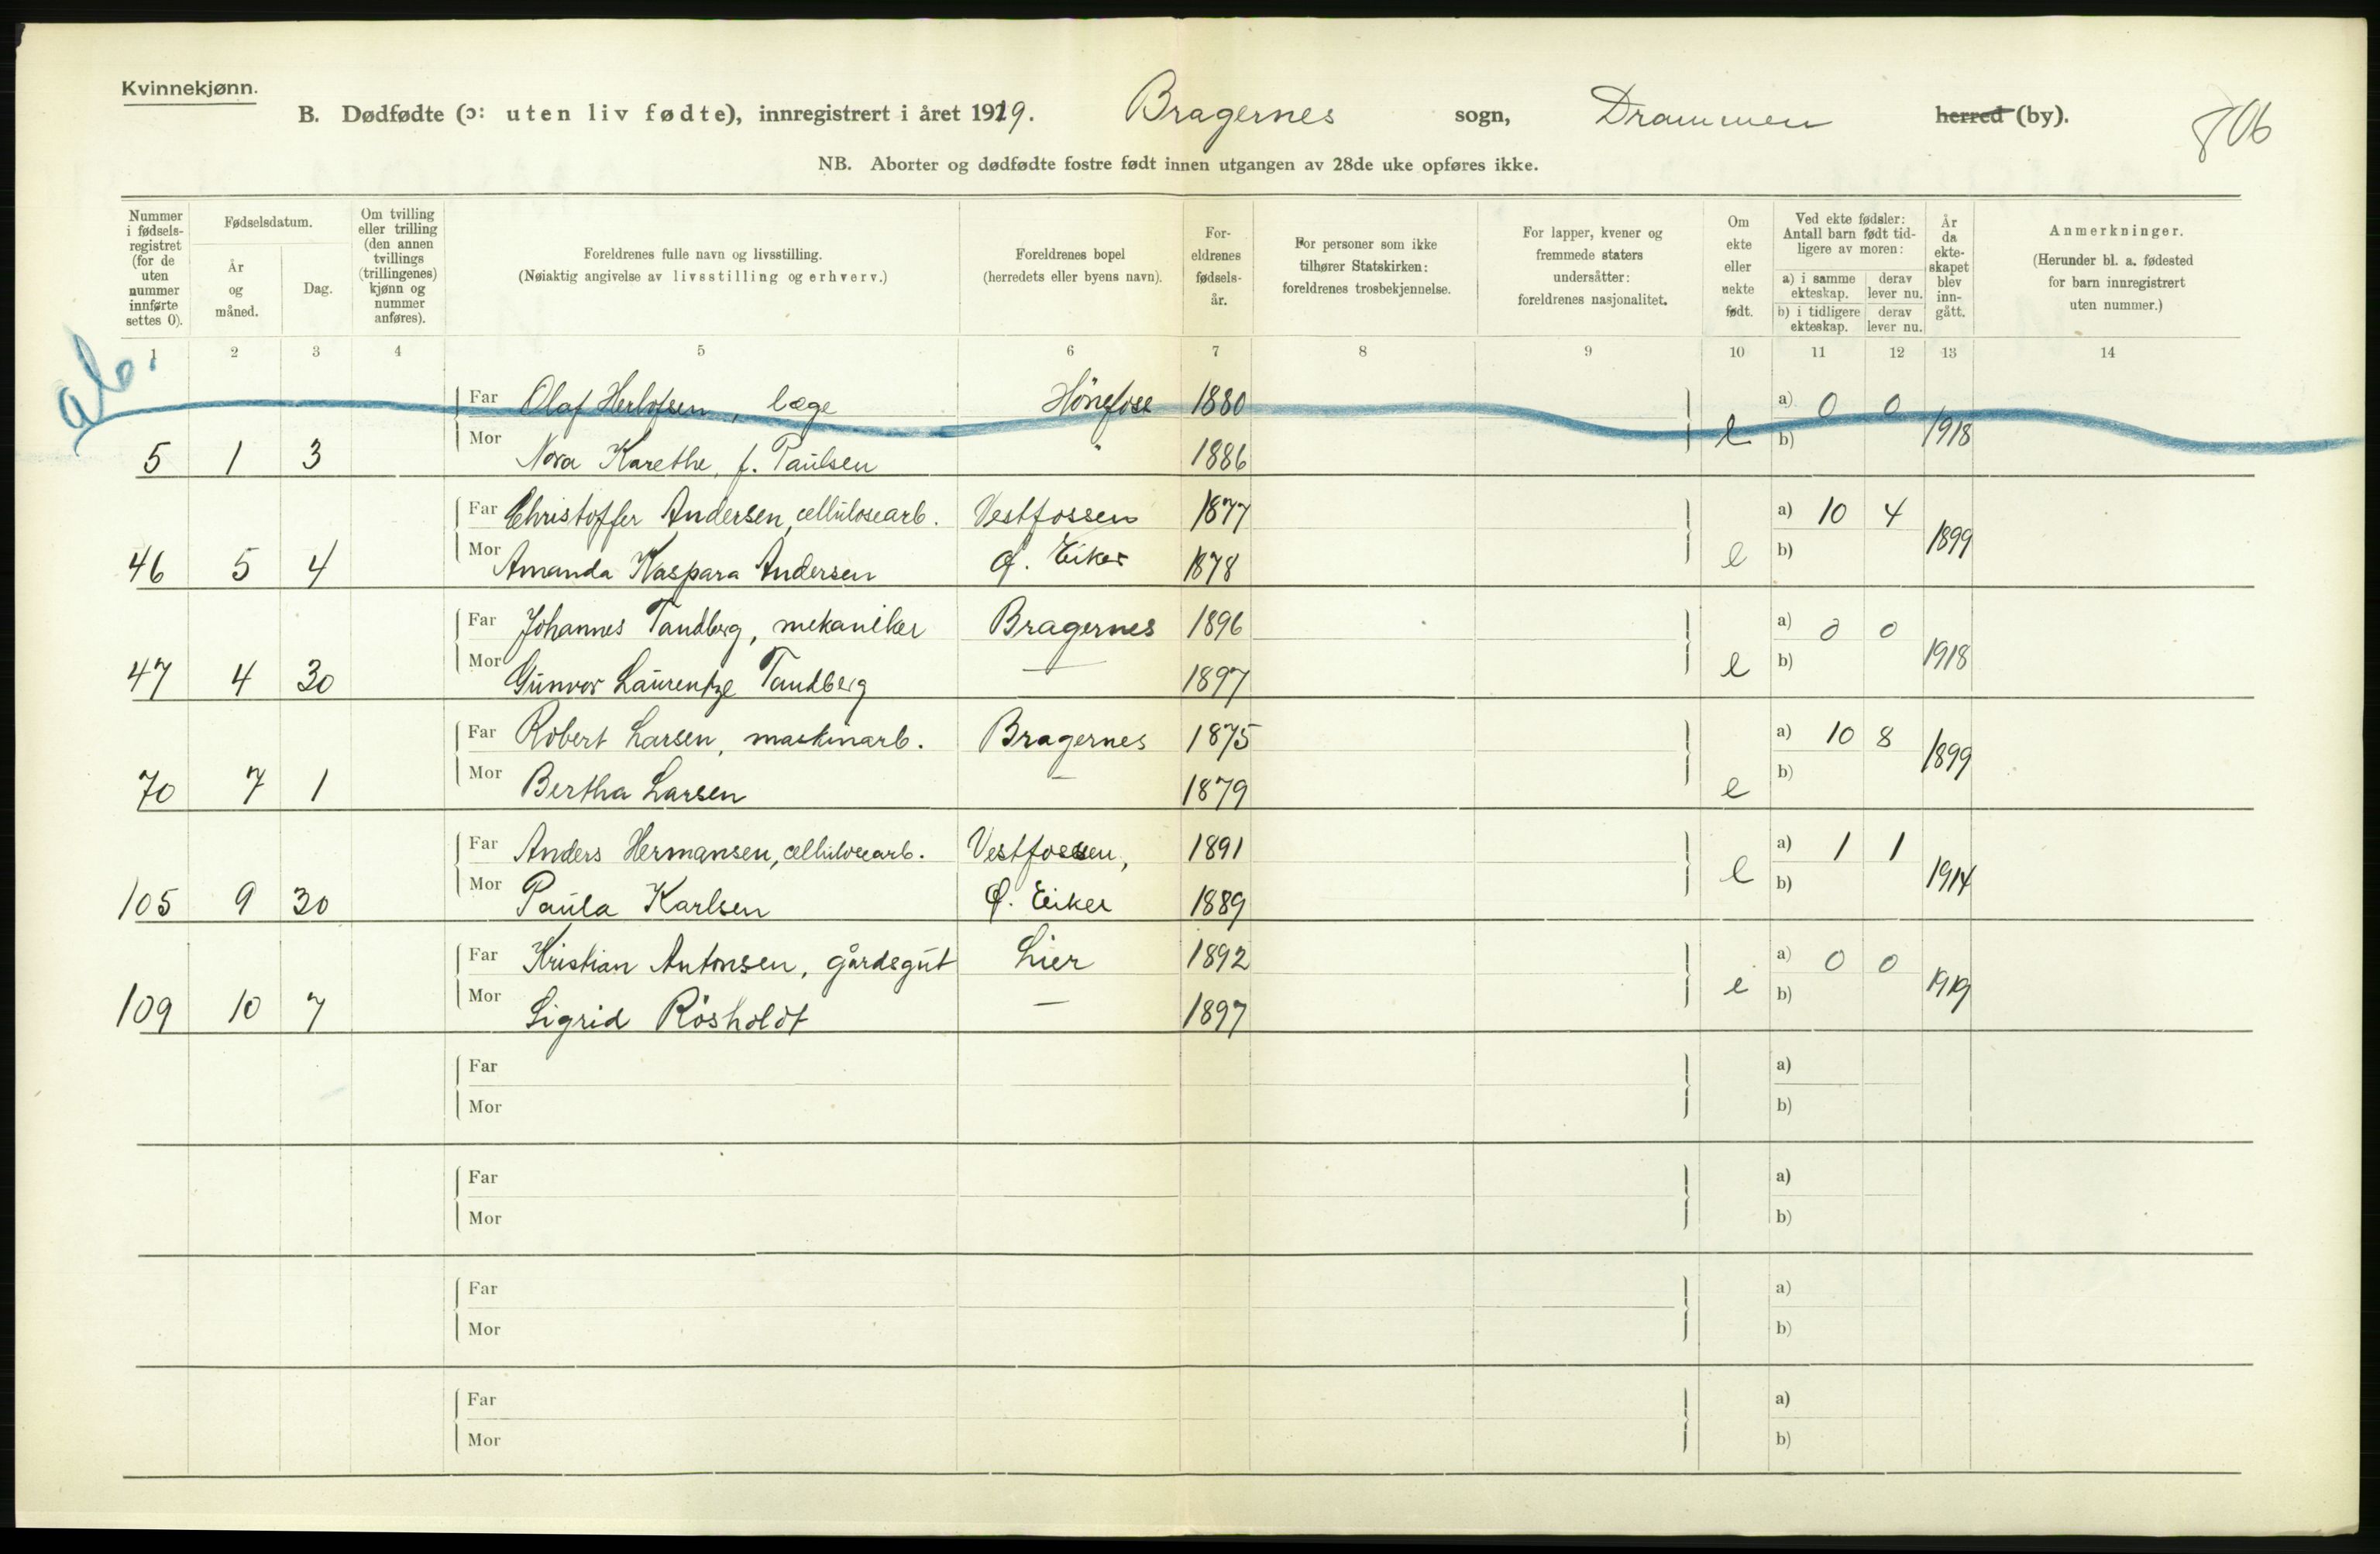 Kvinnekjønn.
B. Dødfødte (ɔ: uten liv fødte), innregistrert i året 1919. Bragernes sogn, Drammen herred (by).
806
NB. Aborter og dødfødte fostre født innen utgangen av 28de uke opføres ikke.
Nummer i fødselsregistret (for de uten nummer innførte settes 0).
Fødselsdatum.
År og måned.
Dag.
Om tvilling eller trilling (den annen tvillings (trillingenes) kjønn og nummer anføres).
Foreldrenes fulle navn og livsstilling.
(Nøiaktig angivelse av livsstilling og erhverv.)
Foreldrenes bopel
(herredets eller byens navn).
Foreldrenes fødselsår.
For personer som ikke tilhører Statskirken: foreldrenes trosbekjennelse.
For lapper, kvener og fremmede staters undersåtter: foreldrenes nasjonalitet.
Om ekte eller uekte født.
Ved ekte fødsler: Antall barn født tidligere av moren:
a) i samme ekteskap. derav lever nu.
b) i tidligere ekteskap. derav lever nu.
År da ekteskapet blev inngått.
Anmerkninger.
(Herunder bl. a. fødested for barn innregistrert uten nummer.)
1 2 3 4 5 6 7 8 9 10 11 12 13 14
ab.
Far Olaf Herlofsen, læge Hönefoss 1880 a) 0 0
5 1 3 Mor Nova Karethe, f. Paulsen " 1886 e b) 1918
Far Christoffer Andersen, cellulosearb. Vestfossen 1877 a) 10 4
46 5 4 Mor Amanda Kaspara Andersen Ø. Eiker 1878 e b) 1899
Far Johannes Tandberg, mekaniker Bragernes 1896 a) 0 0
47 4 30 Mor Gunvor Laurentze Tandberg — 1897 e b) 1918
Far Robert Larsen, maskinarb. Bragernes 1875 a) 10 8
70 7 1 Mor Bertha Larsen — 1879 e b) 1899
Far Anders Hermansen, cellulosearb. Vestfossen, 1891 a) 1 1
105 9 30 Mor Paula Karlsen Ø. Eiker 1889 e b) 1914
Far Kristian Antonsen, gårdsgut Lier 1892 a) 0 0
109 10 7 Mor Sigrid Rösholdt — 1897 e b) 1919
Far a)
Mor b)
Far a)
Mor b)
Far a)
Mor b)
Far a)
Mor b)